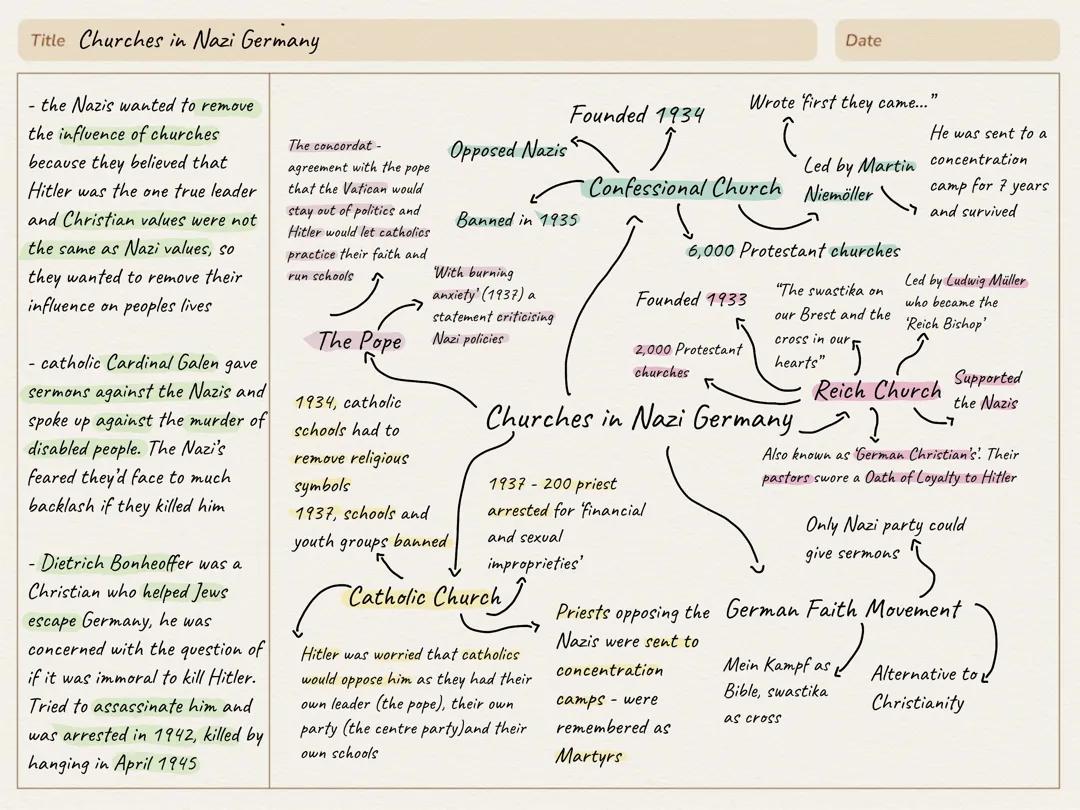 Title Churches in Nazi Germany
Date
- the Nazis wanted to remove
the influence of churches
because they believed that
Hitler was the one true leader
and Christian values were not
the same as Nazi values, so
they wanted to remove their
influence on peoples lives
- catholic Cardinal Galen gave
sermons against the Nazis and
spoke up against the murder of
disabled people. The Nazi's
feared they'd face to much
backlash if they killed him
- Dietrich Bonheoffer was a
Christian who helped Jews
escape Germany, he was
concerned with the question of
if it was immoral to kill Hitler.
Tried to assassinate him and
was arrested in 1942, killed by
hanging in April 1945
The concordat -
agreement with the pope
that the Vatican would
stay out of politics and
Hitler would let catholics
practice their faith and
run schools
The Pope
'With burning
anxiety' (1937) a
statement criticising
Nazi policies
Founded 1934
Opposed Nazis
Confessional Church
Banned in 1935
6,000 Protestant churches
Wrote 'first they came..."
Led by Martin
Niemöller
He was sent to a
concentration
camp for 7 years
and survived
Founded 1933
2,000 Protestant
churches
"The swastika on
our Brest and the
cross in our
hearts"
Led by Ludwig Müller
who became the
'Reich Bishop'
Reich Church
Supported
the Nazis
Also known as 'German Christian's'. Their
pastors swore a Oath of Loyalty to Hitler
Churches in Nazi Germany
1934, catholic
schools had to
remove religious
symbols
1937, schools and
youth groups banned
1937 - 200 priest
arrested for 'financial
and sexual
improprieties'
Catholic Church
Hitler was worried that catholics
would oppose him as they had their
own leader (the pope), their own
party (the centre party)and their
own schools
Priests opposing the
Nazis were sent to
concentration
camps - were
remembered as
Martyrs
Only Nazi party could
give sermons
German Faith Movement
Mein Kampf as
Bible, swastika
as cross
Alternative to
Christianity